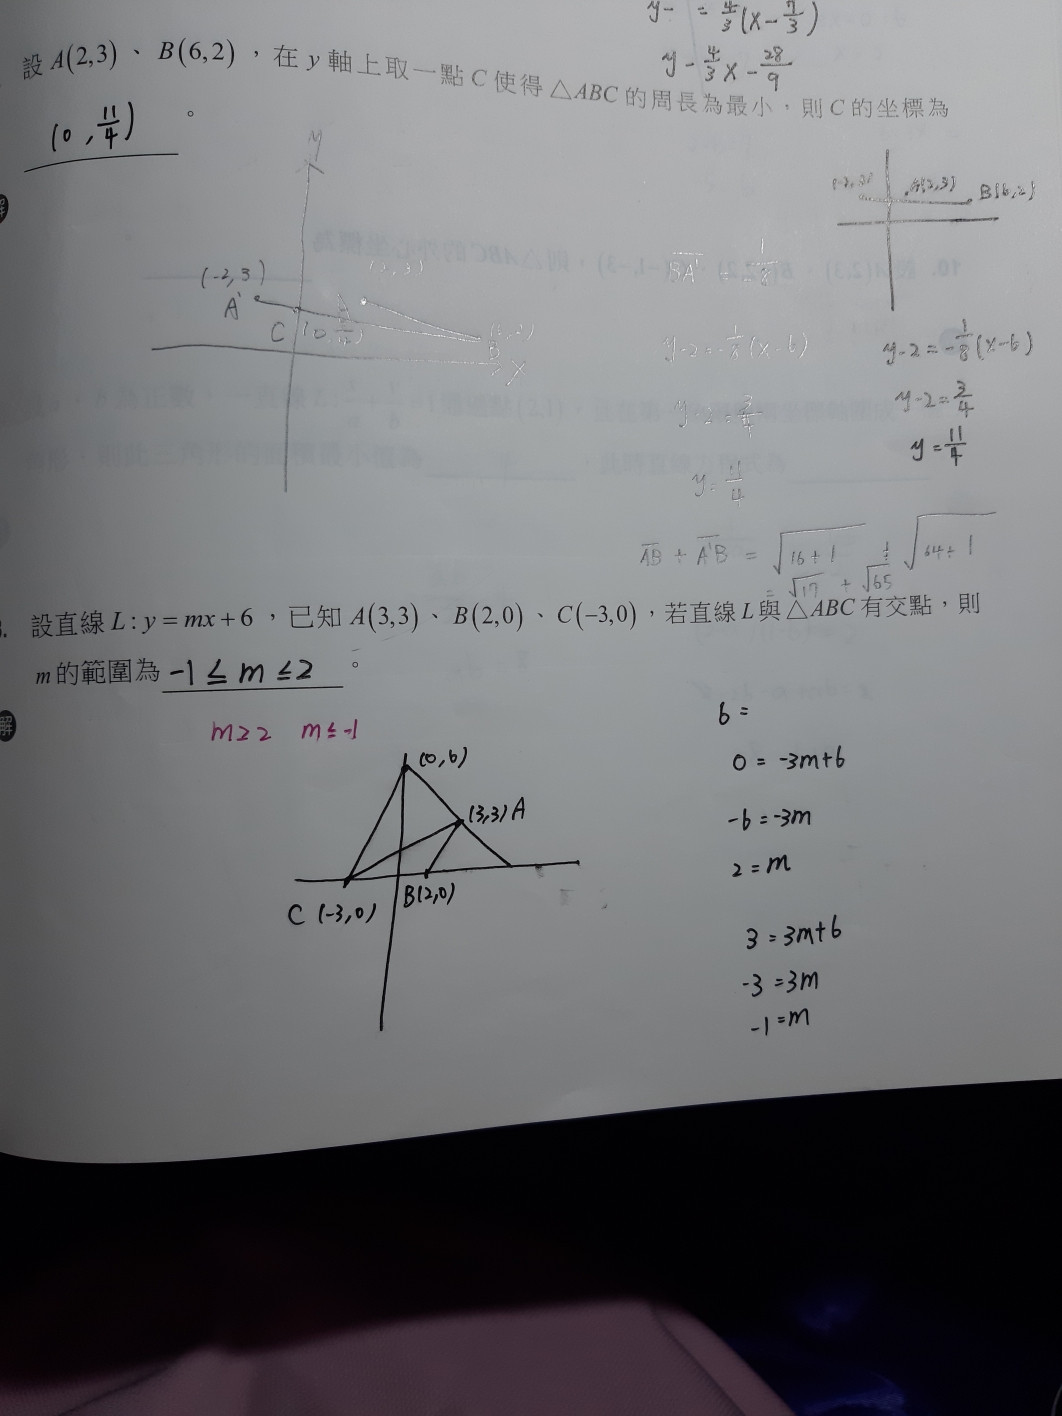 y- = 4/3(x-7/3)
y-4/3x-28/9
設A(2,3)、B(6,2)，在y軸上取一點C使得△ABC的周長為最小，則C的坐標為
(0,11/4)。
(-2,3) A(2,3) B(6,2)
(-2,3)
A'
C
B
x
BA' = -1/8
y-2=-1/8(x-6)
y-2=3/4
y=11/4
y-2=-1/8(x-6)
y-2=3/4
y=11/4
AB + A'B = √16+1 + √64+1
= √17 + √65
設直線L:y=mx+6，已知A(3,3)、B(2,0)、C(-3,0)，若直線L與△ABC有交點，則
m的範圍為-1≤m≤2。
解
m≥2 m≤-1
(0,6)
(3,3)A
B(2,0)
C(-3,0)
6=
0=-3m+6
-6=-3m
2=m
3=3m+6
-3=3m
-1=m